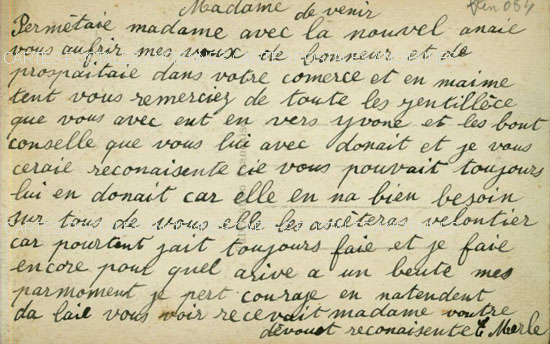 Madame de venir
Permétaie madame avec la nouvel anaie
vous aufrir mes veux de bonneur et de
prospaitaie dans votre comerce et en maime
tent vous remerciez de toute les gentillèce
que vous avec eut en vers yvone et les bout
conselle que vous lui avec donait et je vous
ceraie reconaisente cie vous pouvait toujours
lui en donait car elle en na bien besoin
sur tous de vous elle les ascèteras velontier
car pourtent jait toujours faie et je faie
encore pour quel arive a un beute mes
parmoment je pert couraje en natendent
da laie vous voir recevait madame voutre
dévouet reconaisente E Merle